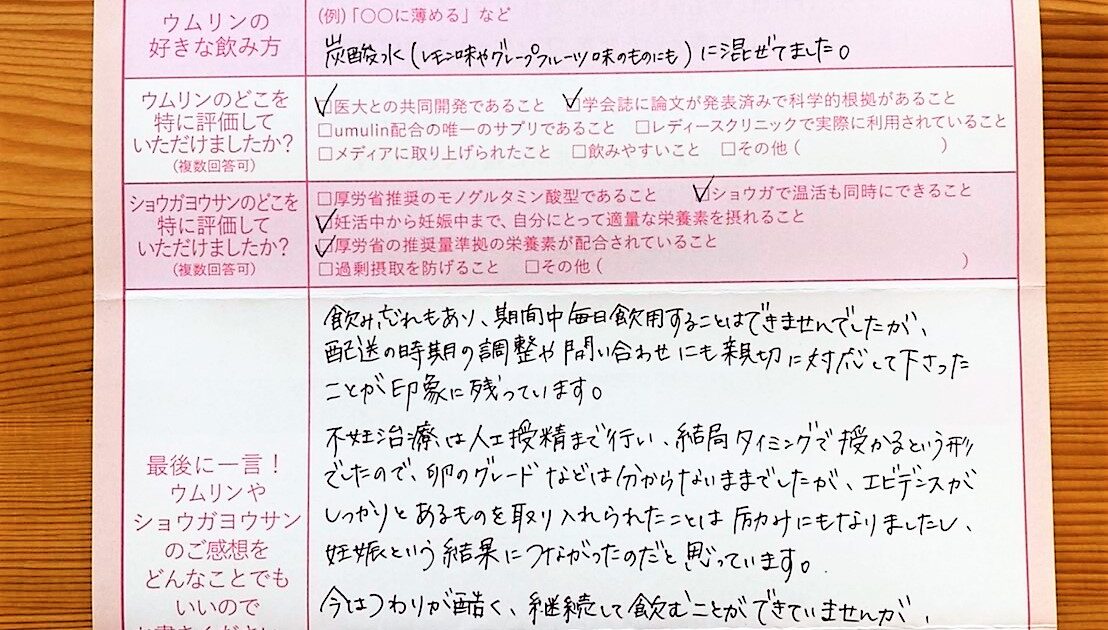 ウムリンの
好きな飲み方
(例)「〇〇に薄める」など
炭酸水(レモン味やグレープフルーツ味のものにも)に混ぜてました。
ウムリンのどこを
特に評価して
いただけましたか?
(複数回答可)
□医大との共同開発であること □学会誌に論文が発表済みで科学的根拠があること
□umulin配合の唯一のサプリであること □レディースクリニックで実際に利用されていること
□メディアに取り上げられたこと □飲みやすいこと □その他( )
ショウガヨウサンのどこを
特に評価して
いただけましたか?
(複数回答可)
□厚労省推奨のモノグルタミン酸型であること □ショウガで温活も同時にできること
□妊活中から妊娠中まで、自分にとって適量な栄養素を摂れること
□厚労省の推奨量準拠の栄養素が配合されていること
□過剰摂取を防げること □その他( )
最後に一言!
ウムリンや
ショウガヨウサン
のご感想を
どんなことでも
いいので
飲み忘れもあり、期間中毎日飲用することはできませんでしたが、
配送の時期の調整や問い合わせにも親切に対応して下さった
ことが印象に残っています。
不妊治療は人工授精まで行い、結局タイミングで授かるという形
でしたので、卵のグレードなどは分からないままでしたが、エビデンスが
しっかりとあるものを取り入れられたことは励みにもなりましたし、
妊娠という結果につながったのだと思っています。
今はつわりが酷く、継続して飲むことができていませんが、